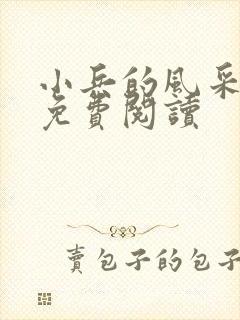 小兵的風采
免費閱讀
賣包子的包子